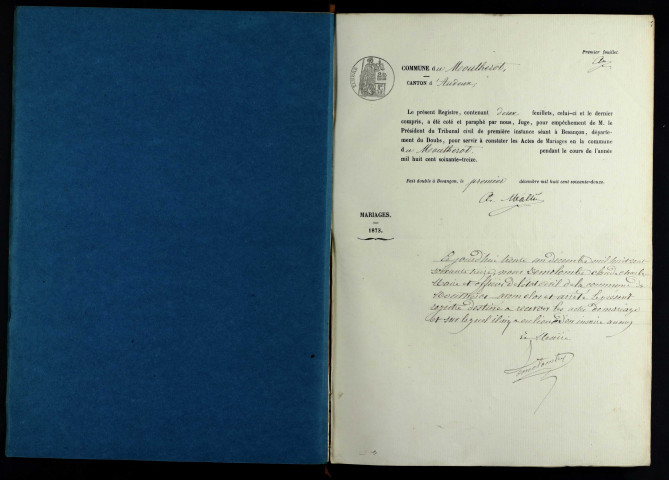 Premier feuillet
COMMUNE du Moutherot,
CANTON d'Audeux,
Le présent Registre, contenant deux feuillets, celui-ci et le dernier
compris, a été coté et paraphé par nous, Juge, pour empêchement de M. le
Président du Tribunal civil de première instance séant à Besançon, départe-
ment du Doubs, pour servir à constater les Actes de Mariages en la commune
du Moutherot, pendant le cours de l'année
mil huit cent soixante-treize.
Fait double à Besançon, le premier décembre mil huit cent soixante-douze.
MARIAGES.
1873.
Cejourd'hui trente un décembre mil huit cent
soixante treize nous Demolombe
Maire et officier de l'état civil de la commune du
Moutherot avons clos et arrêté le présent
registre destiné a recevoir les actes de mariage
et sur lequel il n'y a eu lieu d'en inscrire aucun
Le Maire
Demolombe